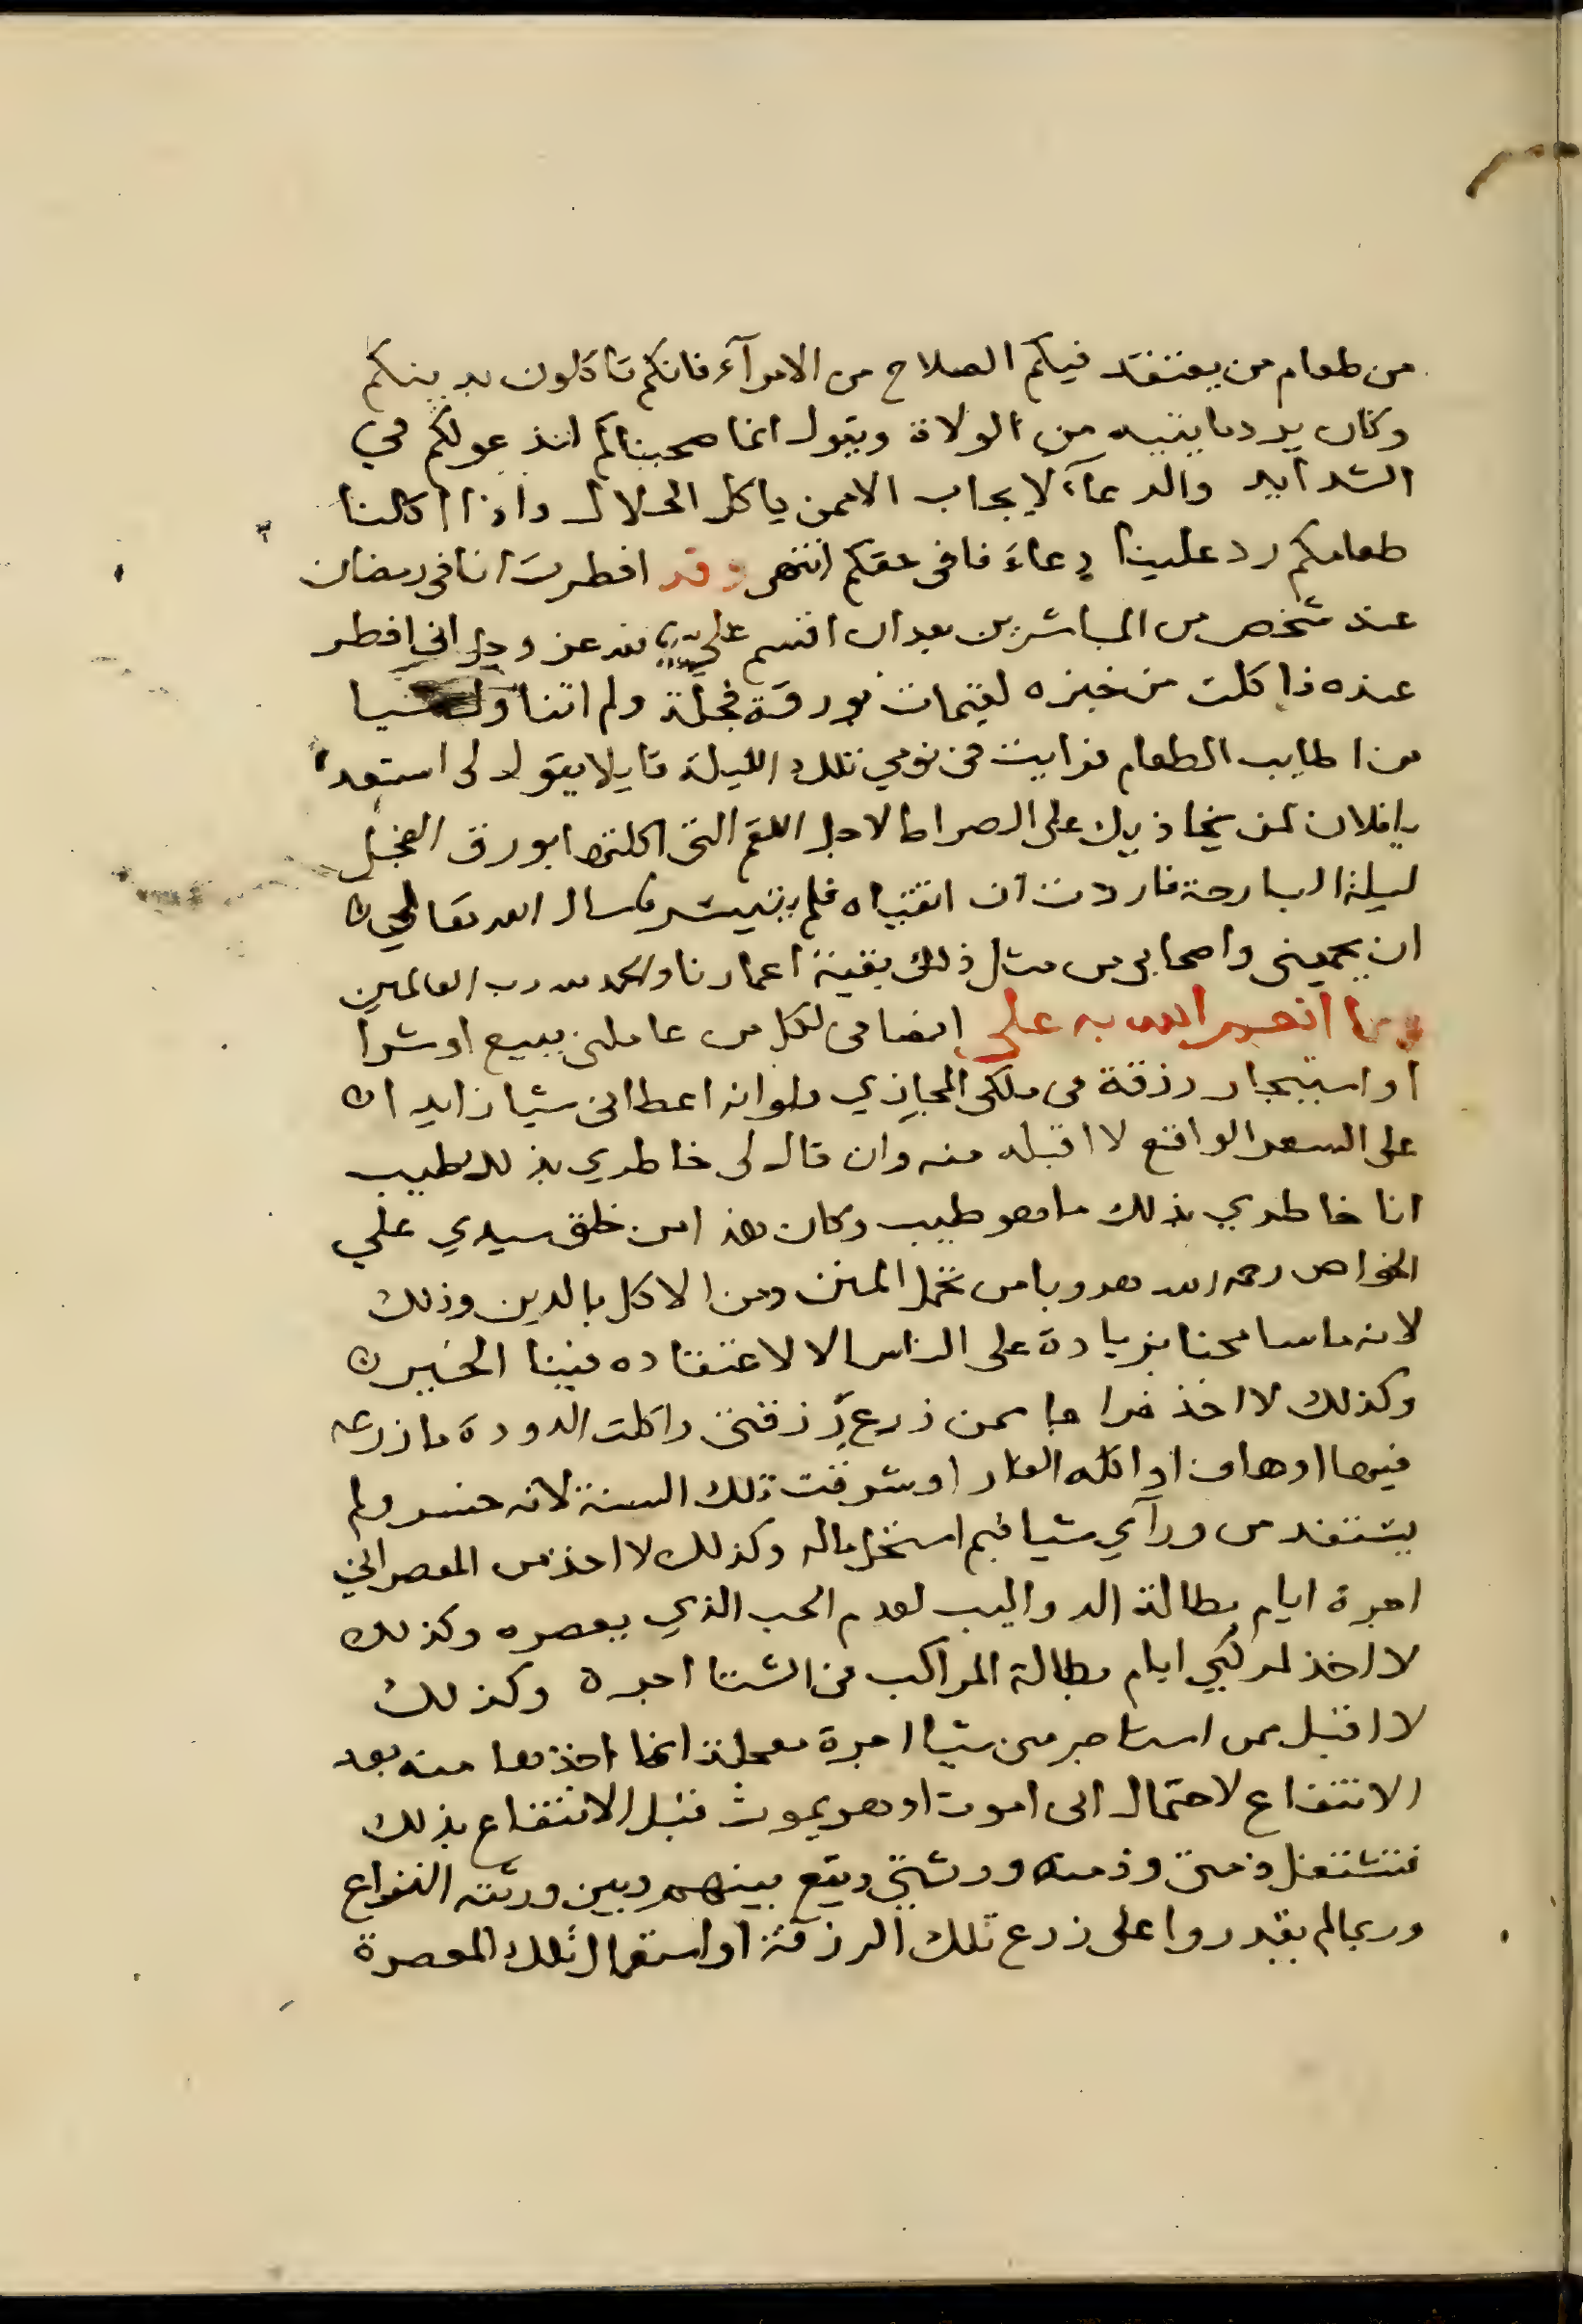 من طعام من يعتقد فيكم الصلاح من الامرآء فانكم تاكلون بدينكم
وكان يرد ما ياتيه من الولاة ويقول انما صحبناكم لندعولكم في
الشدايد والدعآء لا يجاب الا ممن ياكل الحلال واذا اكلنا
طعامكم رد علينا دعاءَنا في حقكم انتهى وقد افطرت انا في رمضان
عند شخص من المباشرين بعد ان اقسم علي بالله عز وجل اني افطر
عنده فاكلت من خبزه لقيمات بورقة فجلة ولم اتناول شيا
من اطايب الطعام فرايت في نومي تلك الليلة قايلا يقول لي استعد
يا فلان لمن يحاذيك على الصراط لاجل اللقم التي اكلتها بورق الفجل
ليلة البارحة فاردت ان اتقياه فلم يتيسر فاسال الله تعالى
ان يحميني واصحابي من مثل ذلك بقية اعمارنا والحمد لله رب العالمين
ومما انعم الله به علي انصافي لكل من عاملني ببيع او شرا
او استيجار رزقة في ملكي المجازي ولو انه اعطاني شيا زايدا
على السعر الواقع لا اقبله منه وان قال لي خاطري بذلك طيب
انا خاطري بذلك ما هو طيب وكان هذا من خلق سيدي علي
الخواص رحمه الله هروبا من تحمل المنن ومن الاكل بالدين وذلك
لانه ما سامحنا بزيادة على الناس الا لاعتقاده فينا الخير
وكذلك لا اخذ خراجا ممن زرع رزقتي واكلت الدودة ما زرعه
فيها او هاف او اكله الفار او شرقت تلك السنة لانه خسر ولم
يستفد من ورآي شيا فبم استحل ماله وكذلك لا اخذ من المعصراني
اجرة ايام بطالة الدواليب لعدم الحب الذي يعصره وكذلك
لا اخذ لمركبي ايام بطالة المراكب في الشتا اجرة وكذلك
لا اقبل ممن استاجر مني شيا اجرة معجلة انما اخذها منه بعد
الانتفاع لاحتمال اني اموت او هو يموت قبل الانتفاع بذلك
فتشتغل ذمتي وذمة ورثتي ويقع بينهم وبين ورثته النزاع
وربما لم يقدروا على زرع تلك الرزقة او استعمال تلك المعصرة